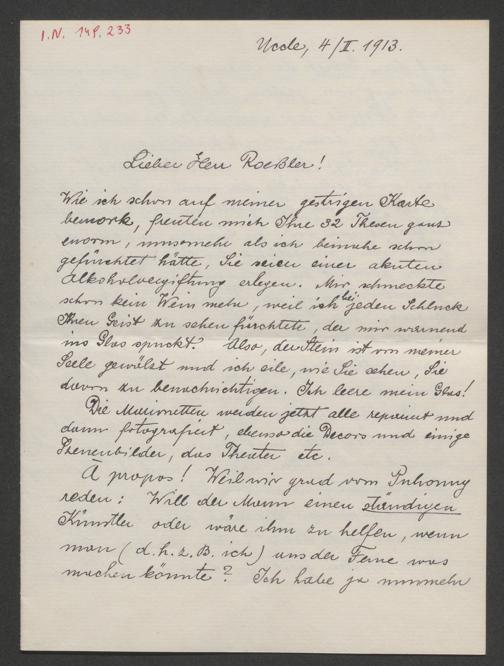 I.N. 149.233
Uccle, 4/II. 1913.
Lieber Herr Roeßler!
Wie ich schon auf meiner gestrigen Karte
bemerk, freuten mich Ihre 32 Thesen ganz
enorm, umsomehr als ich beinahe schon
gefürchtet hätte, Sie seien einer akuten
Alkoholvergiftung erlegen. Mir schmeckte
schon kein Wein mehr, weil ich bei jeden Schluck
Ihren Geist zu sehen fürchtete, der mir warnend
ins Glas spuckt. Also, der Stein ist von meiner
Seele gewälzt und ich eile, wie Sie sehen, Sie
davon zu benachrichtigen. Ich leere mein Glas!
Die Marionetten werden jetzt alle repairt und
dann fotografiert, ebenso die Decors und einige
Szenenbilder, das Theater etc.
À propos! Weil wir grad vom Puhonny
reden: Will der Mann einen ständigen
Künstler oder wäre ihm zu helfen, wenn
man (d.h. z.B. ich) aus der Ferne was
machen könnte? Ich habe ja nunmehr